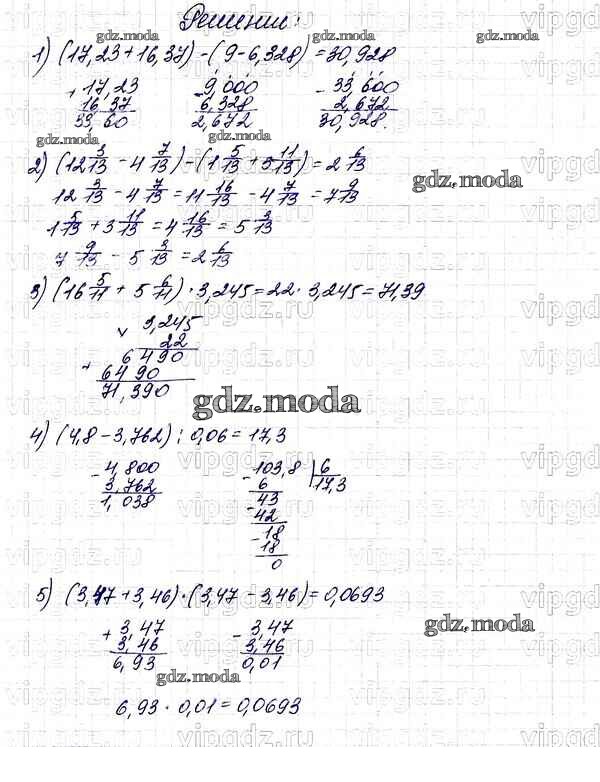 Решение:
1) (17,23+16,37)-(9-6,328)=30,928
+ 17,23 - 9,000 - 33,600
16,37 6,328 2,672
33,60 2,672 30,928.
gdz.moda gdz.moda
gdz.moda
2) (12 3/13 - 4 7/13) - (1 5/13 + 3 11/13) = 2 6/13
gdz.moda
12 3/13 - 4 7/13 = 11 16/13 - 4 7/13 = 7 9/13
1 5/13 + 3 11/13 = 4 16/13 = 5 3/13
7 9/13 - 5 3/13 = 2 6/13
3) (16 5/11 + 5 6/11) · 3,245 = 22 · 3,245 = 71,39
× 3,245
22
6490
+ 6490
71,390
gdz.moda
4) (4,8-3,762) : 0,06 = 17,3
- 4,800 - 103,8 | 6
3,762 6 17,3
1,038 43
- 42
- 18
18
0
5) (3,47+3,46)·(3,47-3,46)=0,0693
+ 3,47 - 3,47
3,46 3,46
6,93 0,01
gdz.moda
gdz.moda
6,93 · 0,01 = 0,0693
gdz.moda